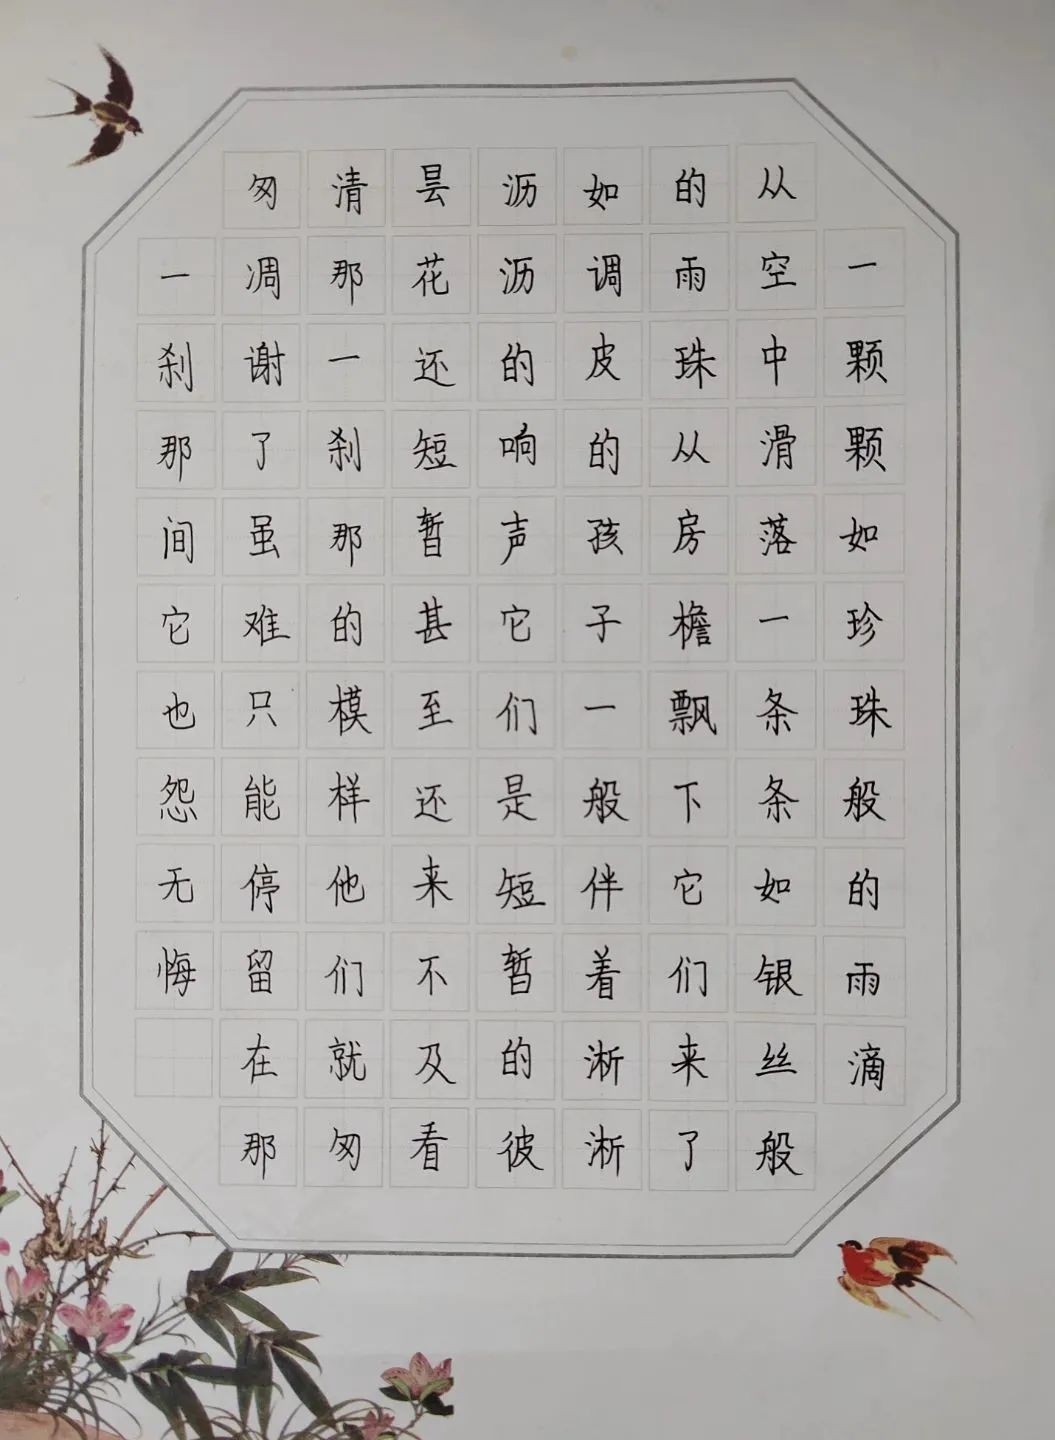 一颗颗如珍珠般的雨滴
从空中滑落一条条如银丝般
的雨珠从房檐飘下它们来了
如调皮的孩子一般伴着淅淅
沥沥的响声它们是短暂的彼
昙花还短暂甚至还来不及看
清那一刹那的模样他们就匆
匆凋谢了虽难只能停留在那
一刹那间它也怨无悔